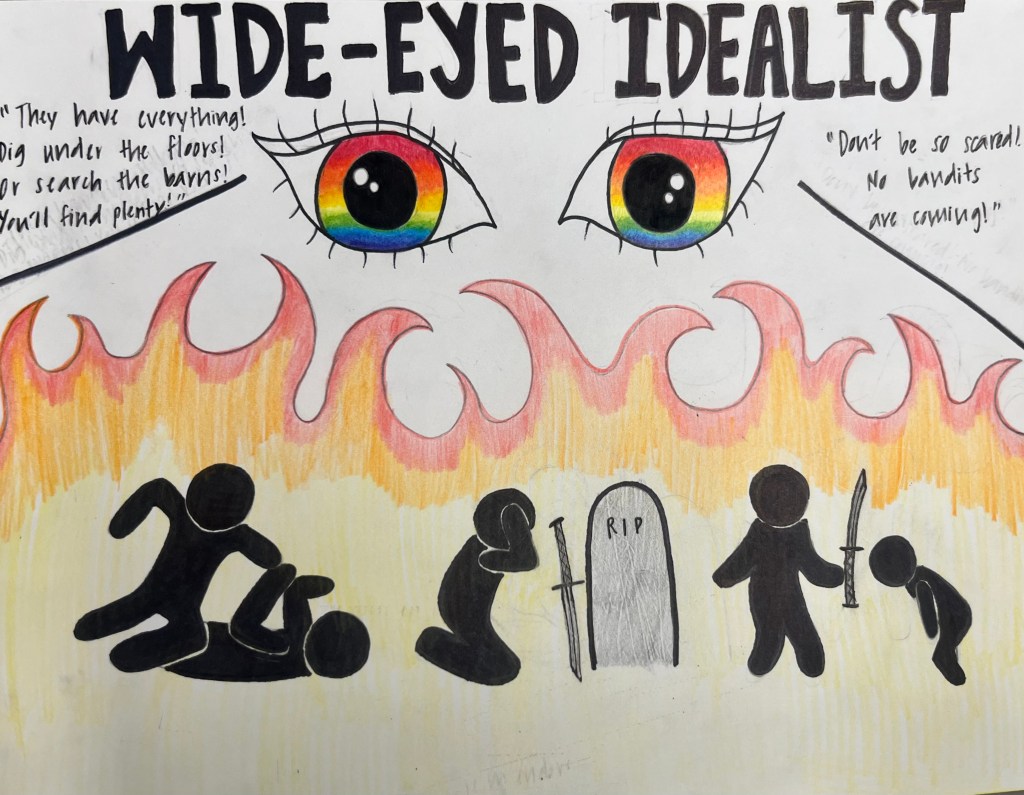 WIDE-EYED IDEALIST
"They have everything!
Dig under the floors!
Or search the barns!
You'll find plenty!"
"Don't be so scared!
No bandits
are coming!"
RIP